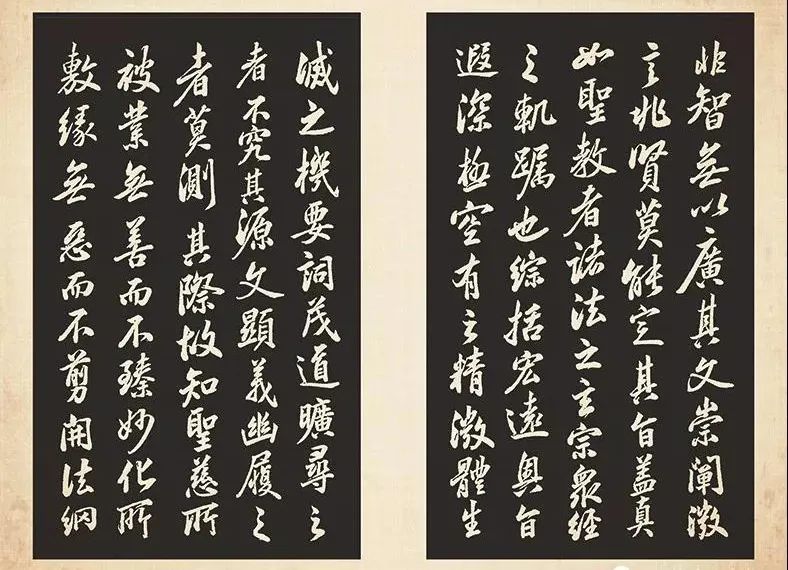 非智無以廣其文崇闡微
言非賢莫能定其旨盖真
如聖教者諸法之玄宗衆經
之軌躅也綜括宏遠奥旨
遐深極空有之精微體生
滅之機要詞茂道曠尋之
者不究其源文顯義幽履之
者莫測其際故知聖慈所
被業無善而不臻妙化所
敷緣無惡而不剪開法網